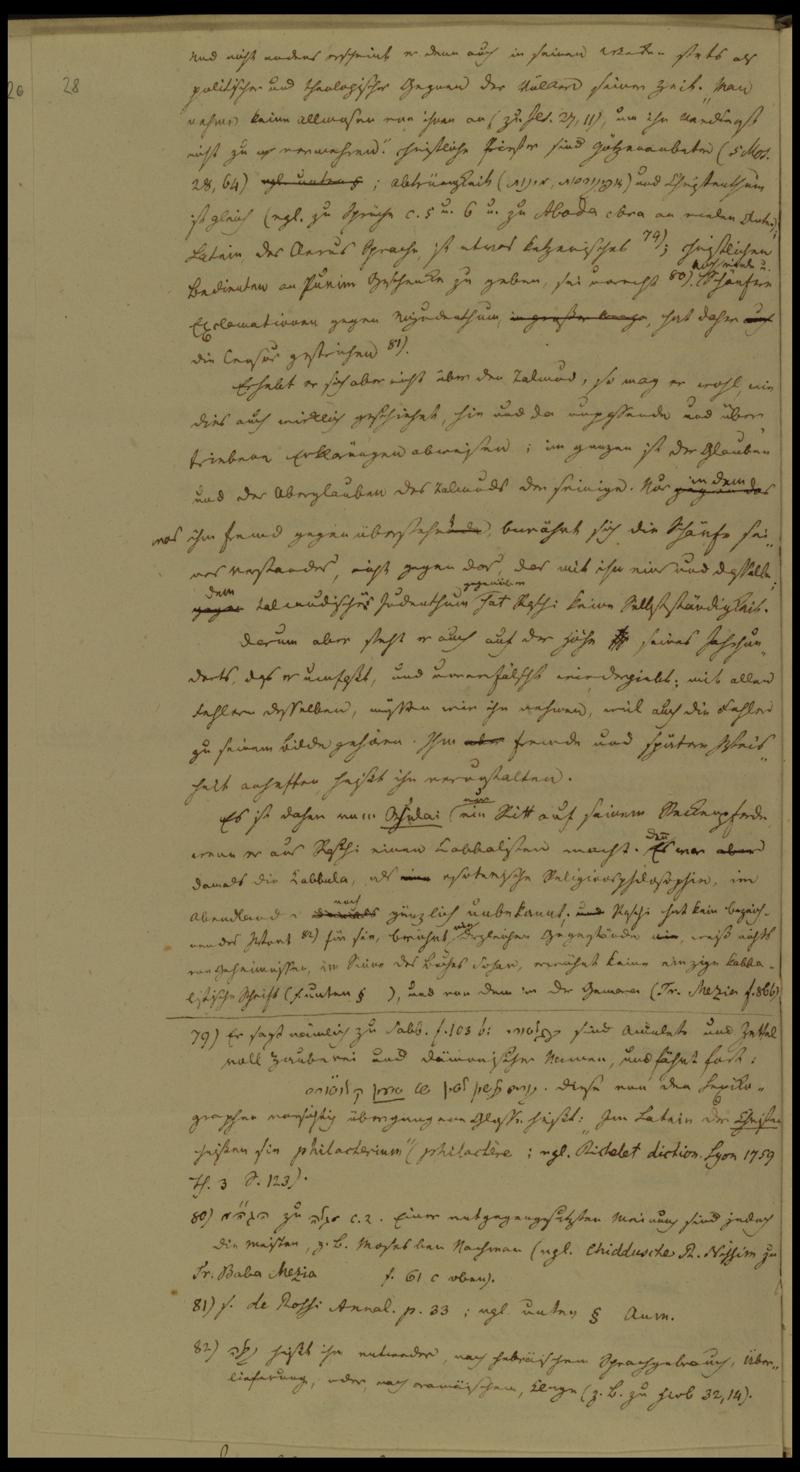 26 28
und nicht anders erscheint er denn auch in seinen stets als
politischer und theologischer Gegner der Völker seiner Zeit. "Man
nehme keine Allmosen von ihnen an (zu Jes. 27, 11), um ihr Verdienst
nicht zu vermehren." christliche Priester sind Götzenanbeter (5 Mos.
28, 64) vgl. unten § ; Abtrünnigkeit (מינות, אפיקורסות) und Christenthum
ist gleich (vgl. zu Sprüche c. 5 u. 6 u. zu Aboda sara an vielen Orten);
Latein, des Clerus Sprache ist etwas ketzerisches 79); christlichen
Bedienten an Purim Geschenke zu geben, sei unrecht 80). Noch viele u. schärfere
Exclamationen gegen in großer Menge, hat daher auch
die Censur gestrichen 81).
Erhebt er sich aber nicht über den Talmud, so mag er wohl, wie
dies auch wirklich geschieht, hie und da unpassende und über-
triebene Erklärungen abweisen; im ganzen ist der Glauben
und der Aberglauben des Talmuds der seinige. Nur in dem
was ihm fremd gegenübersteht, bewährt sich die Schärfe sei-
nes Verstandes, nicht gegen das, das mit ihm eins und dasselbe;
dem talmudischen Judenthum gegenüber hat Raschi keine Selbstständigkeit.
Darum aber steht er auch auf der Höhe seines Jahrhun-
derts, das er umfaßt, und unverfälscht wiedergiebt; mit allen
Fehlern desselben, müssen wir ihn nehmen, weil auch die Fehler
zu seinem Bilde gehören. Ihm aber fremde und spätere Weis-
heit anheften, heißt ihn verunstalten.
Es ist daher vom Asulai nur ein Ritt auf seinem Steckenpferde
wenn er aus Raschi einen Cabbalisten macht. Es war aber
damals die Cabbala, als eine esoterische Religionsphilosophie, im
Abendland noch gänzlich unbekannt. und Raschi hat kein bezeich-
nendes Wort 82) für sie, berührt nie dergleichen Gegenstände nie, weiß nichts
von Geheimnissen, im Sinne des Buches Sohar, erwähnt keine einzige kabba-
listische Schrift (s. unten § ), und von dem in der Gemara (Tr. Mezia f. 86b)
79) Er sagt nämlich zu Sabb. f. 103 b: קמיעות sind Amulete und Zettel
voll Zauberei und dämonischer Namen, und fährt fort:
. Diese von den Lexiko-
graphen vorsichtig übergangene Glosse heißt: "Im Latein der Christen
heißen sie philacterium" (philactère; vgl. Richelet diction. Lyon 1759
Th. 3 S. 123).
80) zu c. 2. Einer entgegengesetzten Meinung sind jedoch
die meisten, z. B. Moses ben Nachman (vgl. Chidduschei R. Nissim zu
Tr. Baba Mezia f. 61 c oben).
81) s. de Rossi Annal. p. 33; vgl. unten § Anm.
82) קבלה heißt ihm entweder, nach hebräischem Sprachgebrauch, Über-
lieferung, oder, nach aramäischem, Klage (z. B. zu Hiob 32, 14).